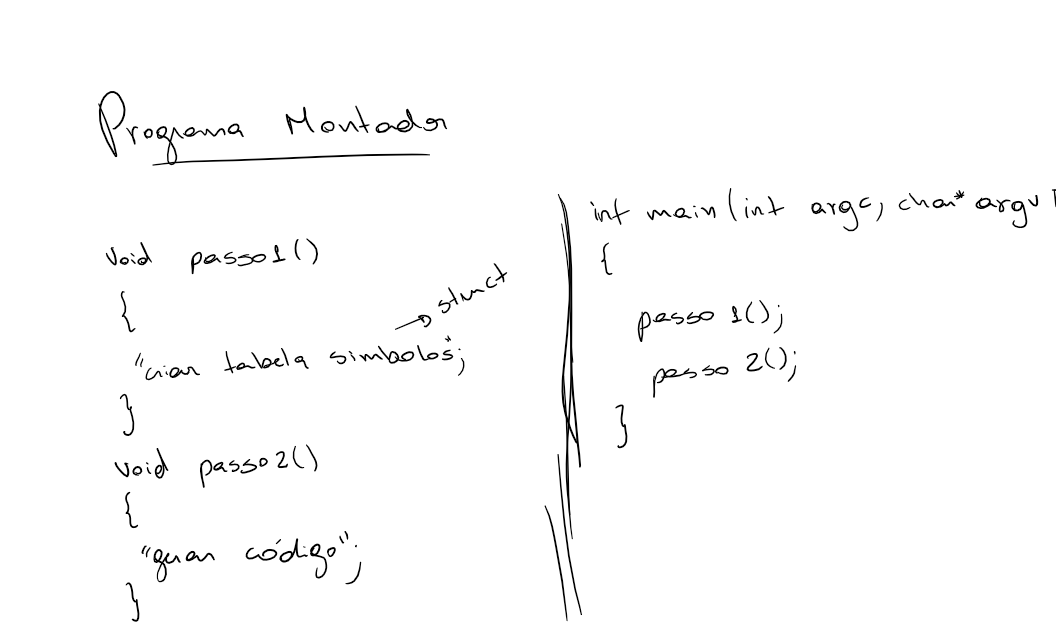 Programa Montador
void passo1()
{
"criar tabela simbolos";
→ struct
}
void passo2()
{
"gerar código";
}
int main(int argc, char* argv[
{
passo 1();
passo 2();
}